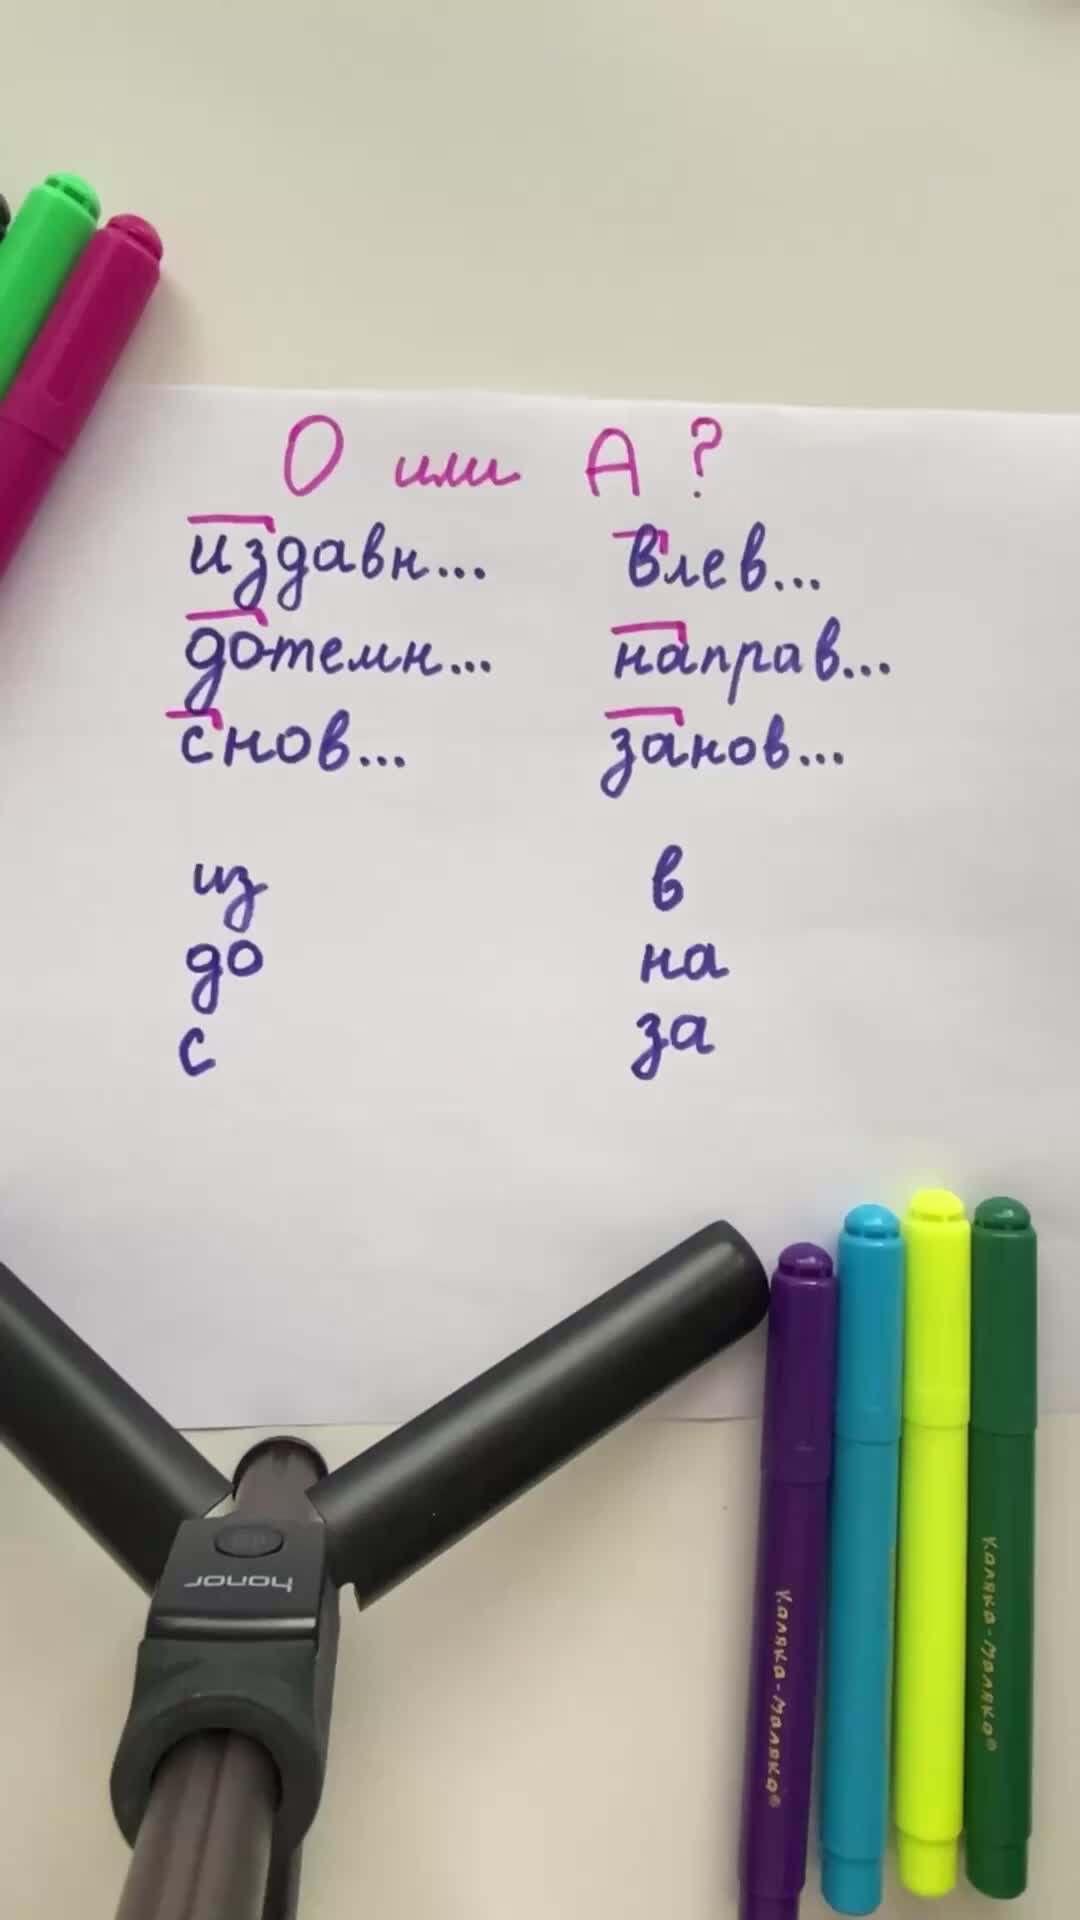 О или А ?
издавн... влев...
дотемн... направ...
снов... занов...
из в
до на
с за
honor
Каляка-Маляка®
Каляка-Маляка®